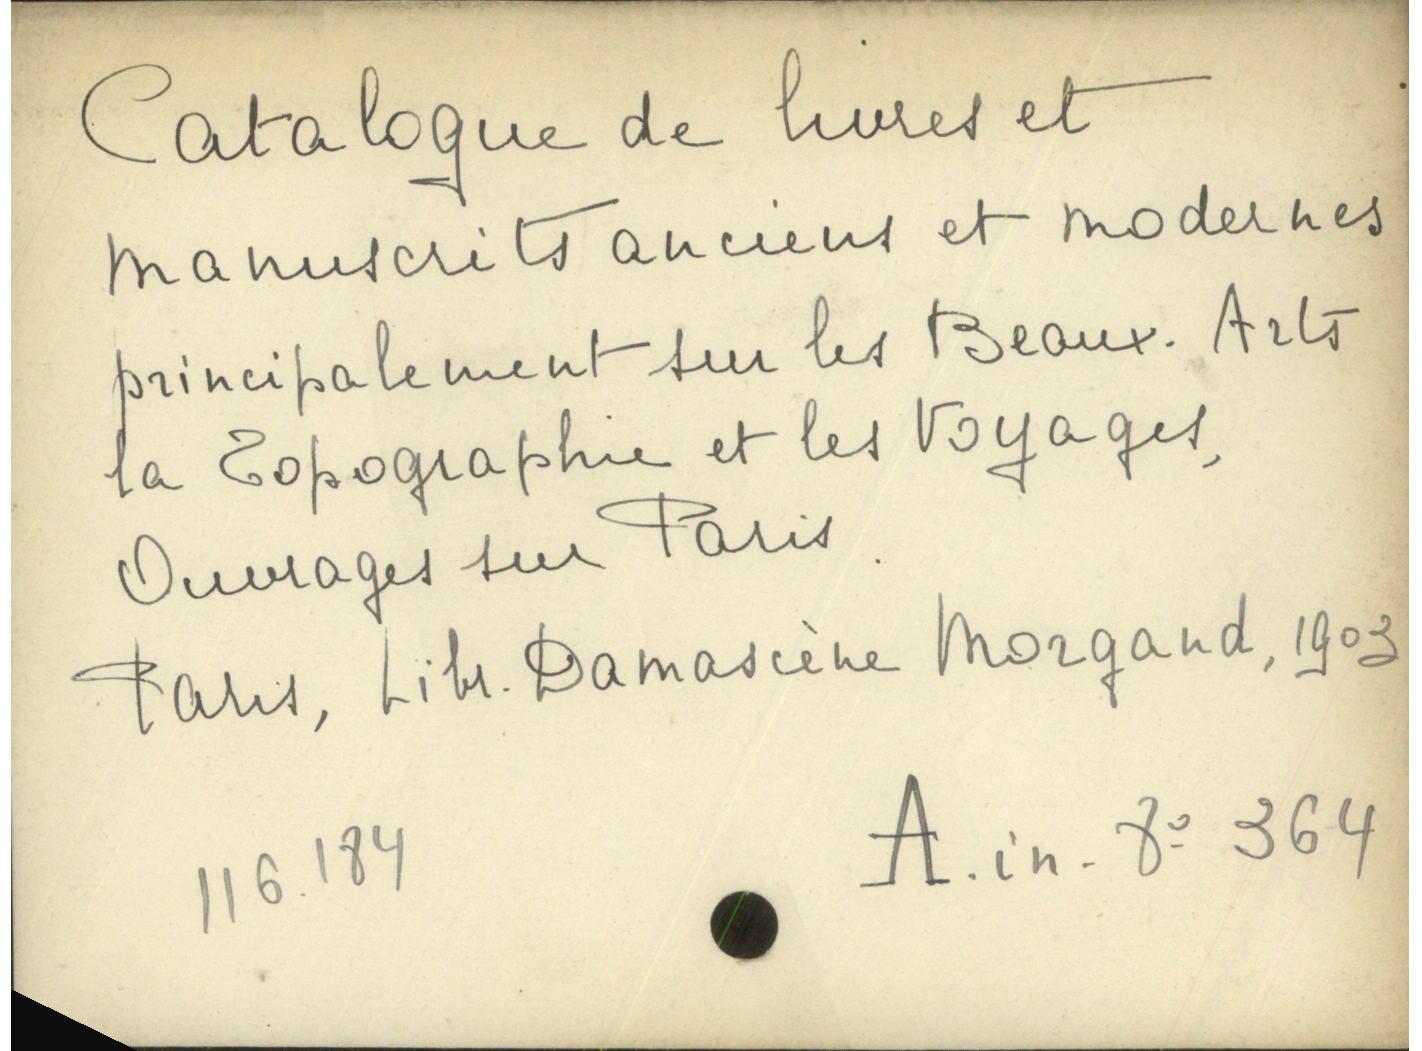 Catalogue de livres et
manuscrits anciens et modernes
principalement sur les Beaux-Arts
la Topographie et les Voyages,
Ouvrages sur Paris.
Paris, Libr. Damascène Morgand, 1903
116.184
A. in-8º 364